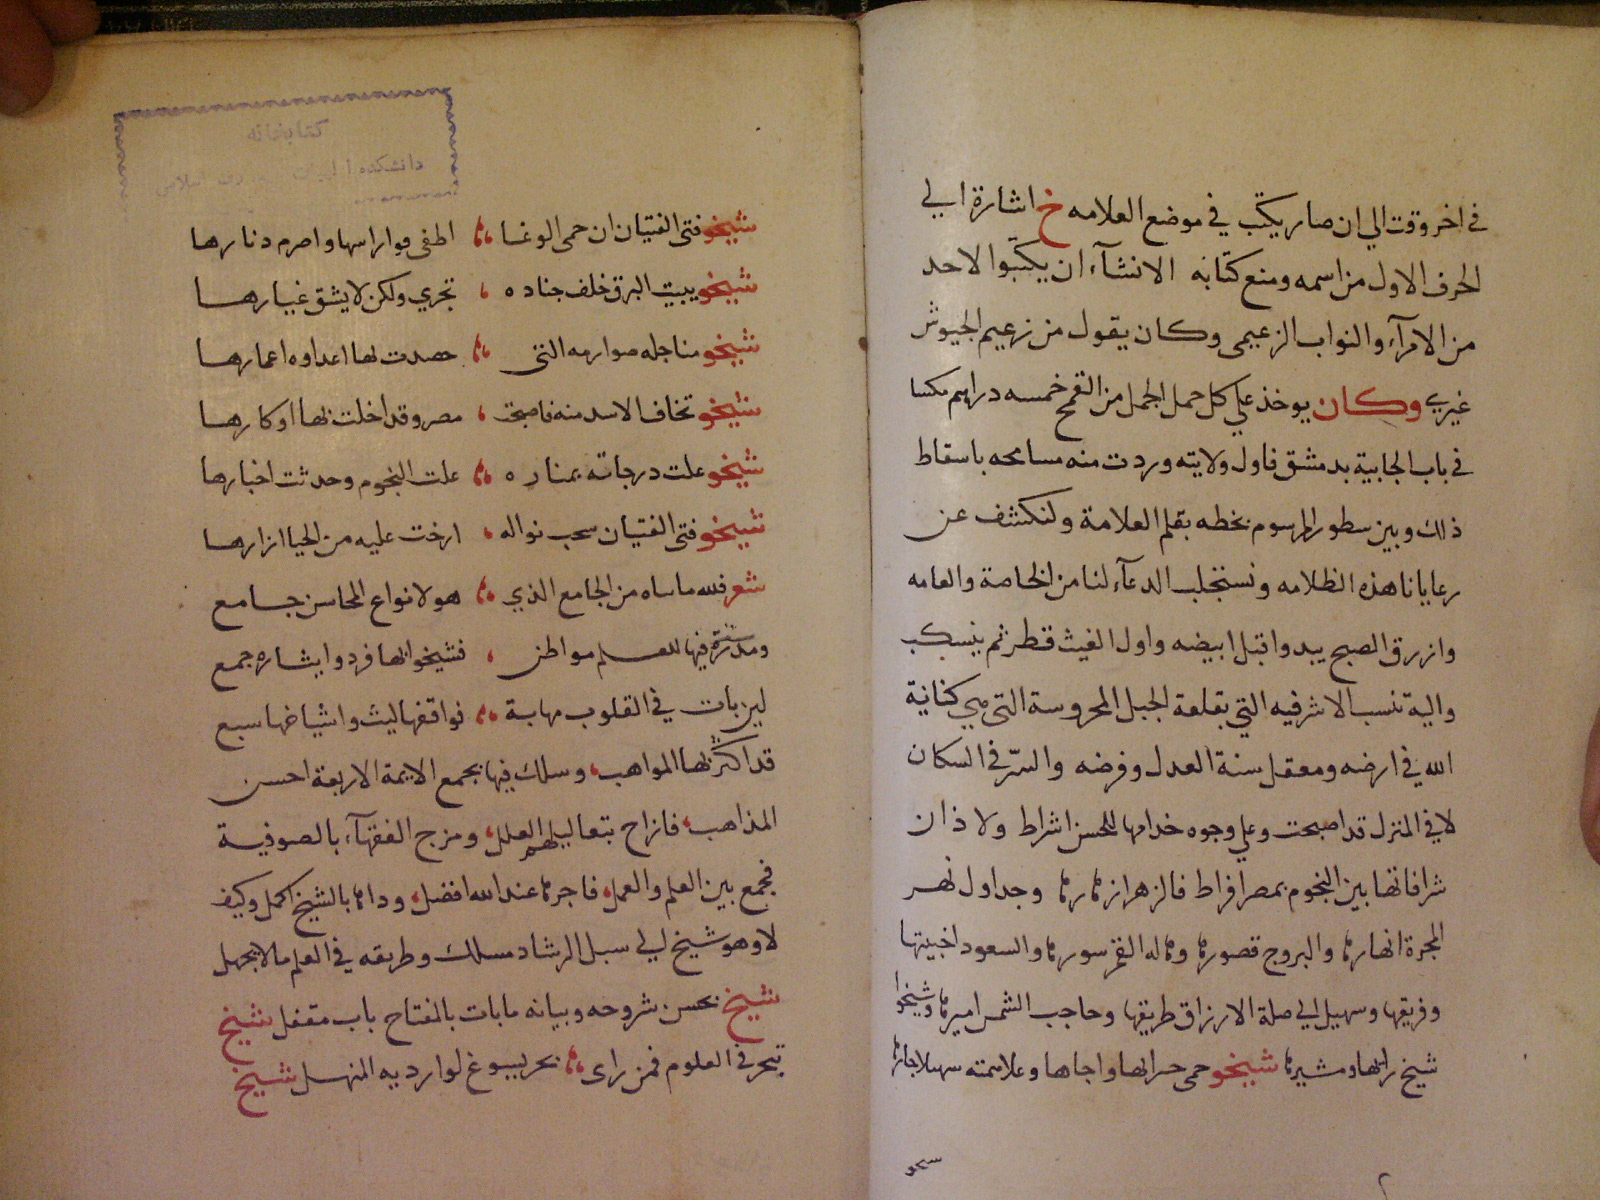 في اخر وقت الي ان صار يكتب في موضع العلامه خ اشارة الي
الحرف الاول من اسمه ومنع كتابه الانشآء ان يكتبوا لاحد
من الامرآء والنواب الزعيمى وكان يقول من زعيم الجيوش
غيري وكان يوخذ علي كل حمل الجمل من القمح خمسه دراهم مكسا
في باب الجابية بدمشق فاول ولايته وردت منه مسامحه باسقاط
ذلك وبين سطور المرسوم بخطه بقلم العلامة ولنكشف عن
رعايانا هذه الظلامه ونستجلب الدعآء لنا من الخاصة والعامه
وازرق الصبح يبدوا قبل ابيضه واول الغيث قطر ثم ينسكب
واليه تنسب الاشرفيه التي بقلعة الجبل المحروسة التي هي كنانة
الله في ارضه ومعقل سنة العدل وفرضه والسر في السكان
لا في المنزل قد اصبحت وعلي وجوه خدامها للحسن اشراط ولاذان
شرافاتها بين النجوم بمصر اقراط فالزهر ازهارها وجداول نهر
المجرة انهارها والبروج قصورها وهالة القمر سورها والسعود اخبيتها
وفريقها وسهيل الي صلة الارزاق طريقها وحاجب الشمس اميرها وشيخوا
شيخ رايها ومشيرها شيخو حمى حرابها واجاها وعلاسمته سهيلا جارها
شيخو
شيخو فتى الفتيان ان حمى الوغا اطفى اوار اسها واضرم نارها
شيخو يبيت البرق خلف جناده تجري ولكن لا يشق غبارها
شيخو مناجله صوارمه التى حصدت لها اعداوه اعمارها
شيخو تخاف الاسد منه فاصبحت مصر وقد اخلت لها اوكارها
شيخو علت درجاته بمناره علت النجوم وحدثت اخبارها
شيخو فتى الفتيان سحب نواله ارخت عليه من الحيا ازارها
شعر فلله ما ساه من الجامع الذي هو لانواع المحاسن جامع
ومدرسة فيها للعلم مواطن فشيخوا لها فرد وايثاره جمع
لين بات في القلوب مهابة فواقفها ليث واشياخها سبع
قد اكثر لها المواهب وسلك فيها بجمع الايمة الاربعة احسن
المذاهب فازاح بتعاليلهم العلل ومزج الفقهآء بالصوفية
فجمع بين العلم والعمل فاجرها عند الله افضل ودامها بالشيخ اكمل وكيف
لا وهو شيخ لي سبل الرشاد مسلك وطريقه في العلم ما لا يجهل
شيخ بحسن شروحه وبيانه ما بات بالمفتاح باب مقفل شيخ
تبحر في العلوم فمن راى بحر يسوغ لوارديه المنهل شيخ
كتابخانه
دانشكده